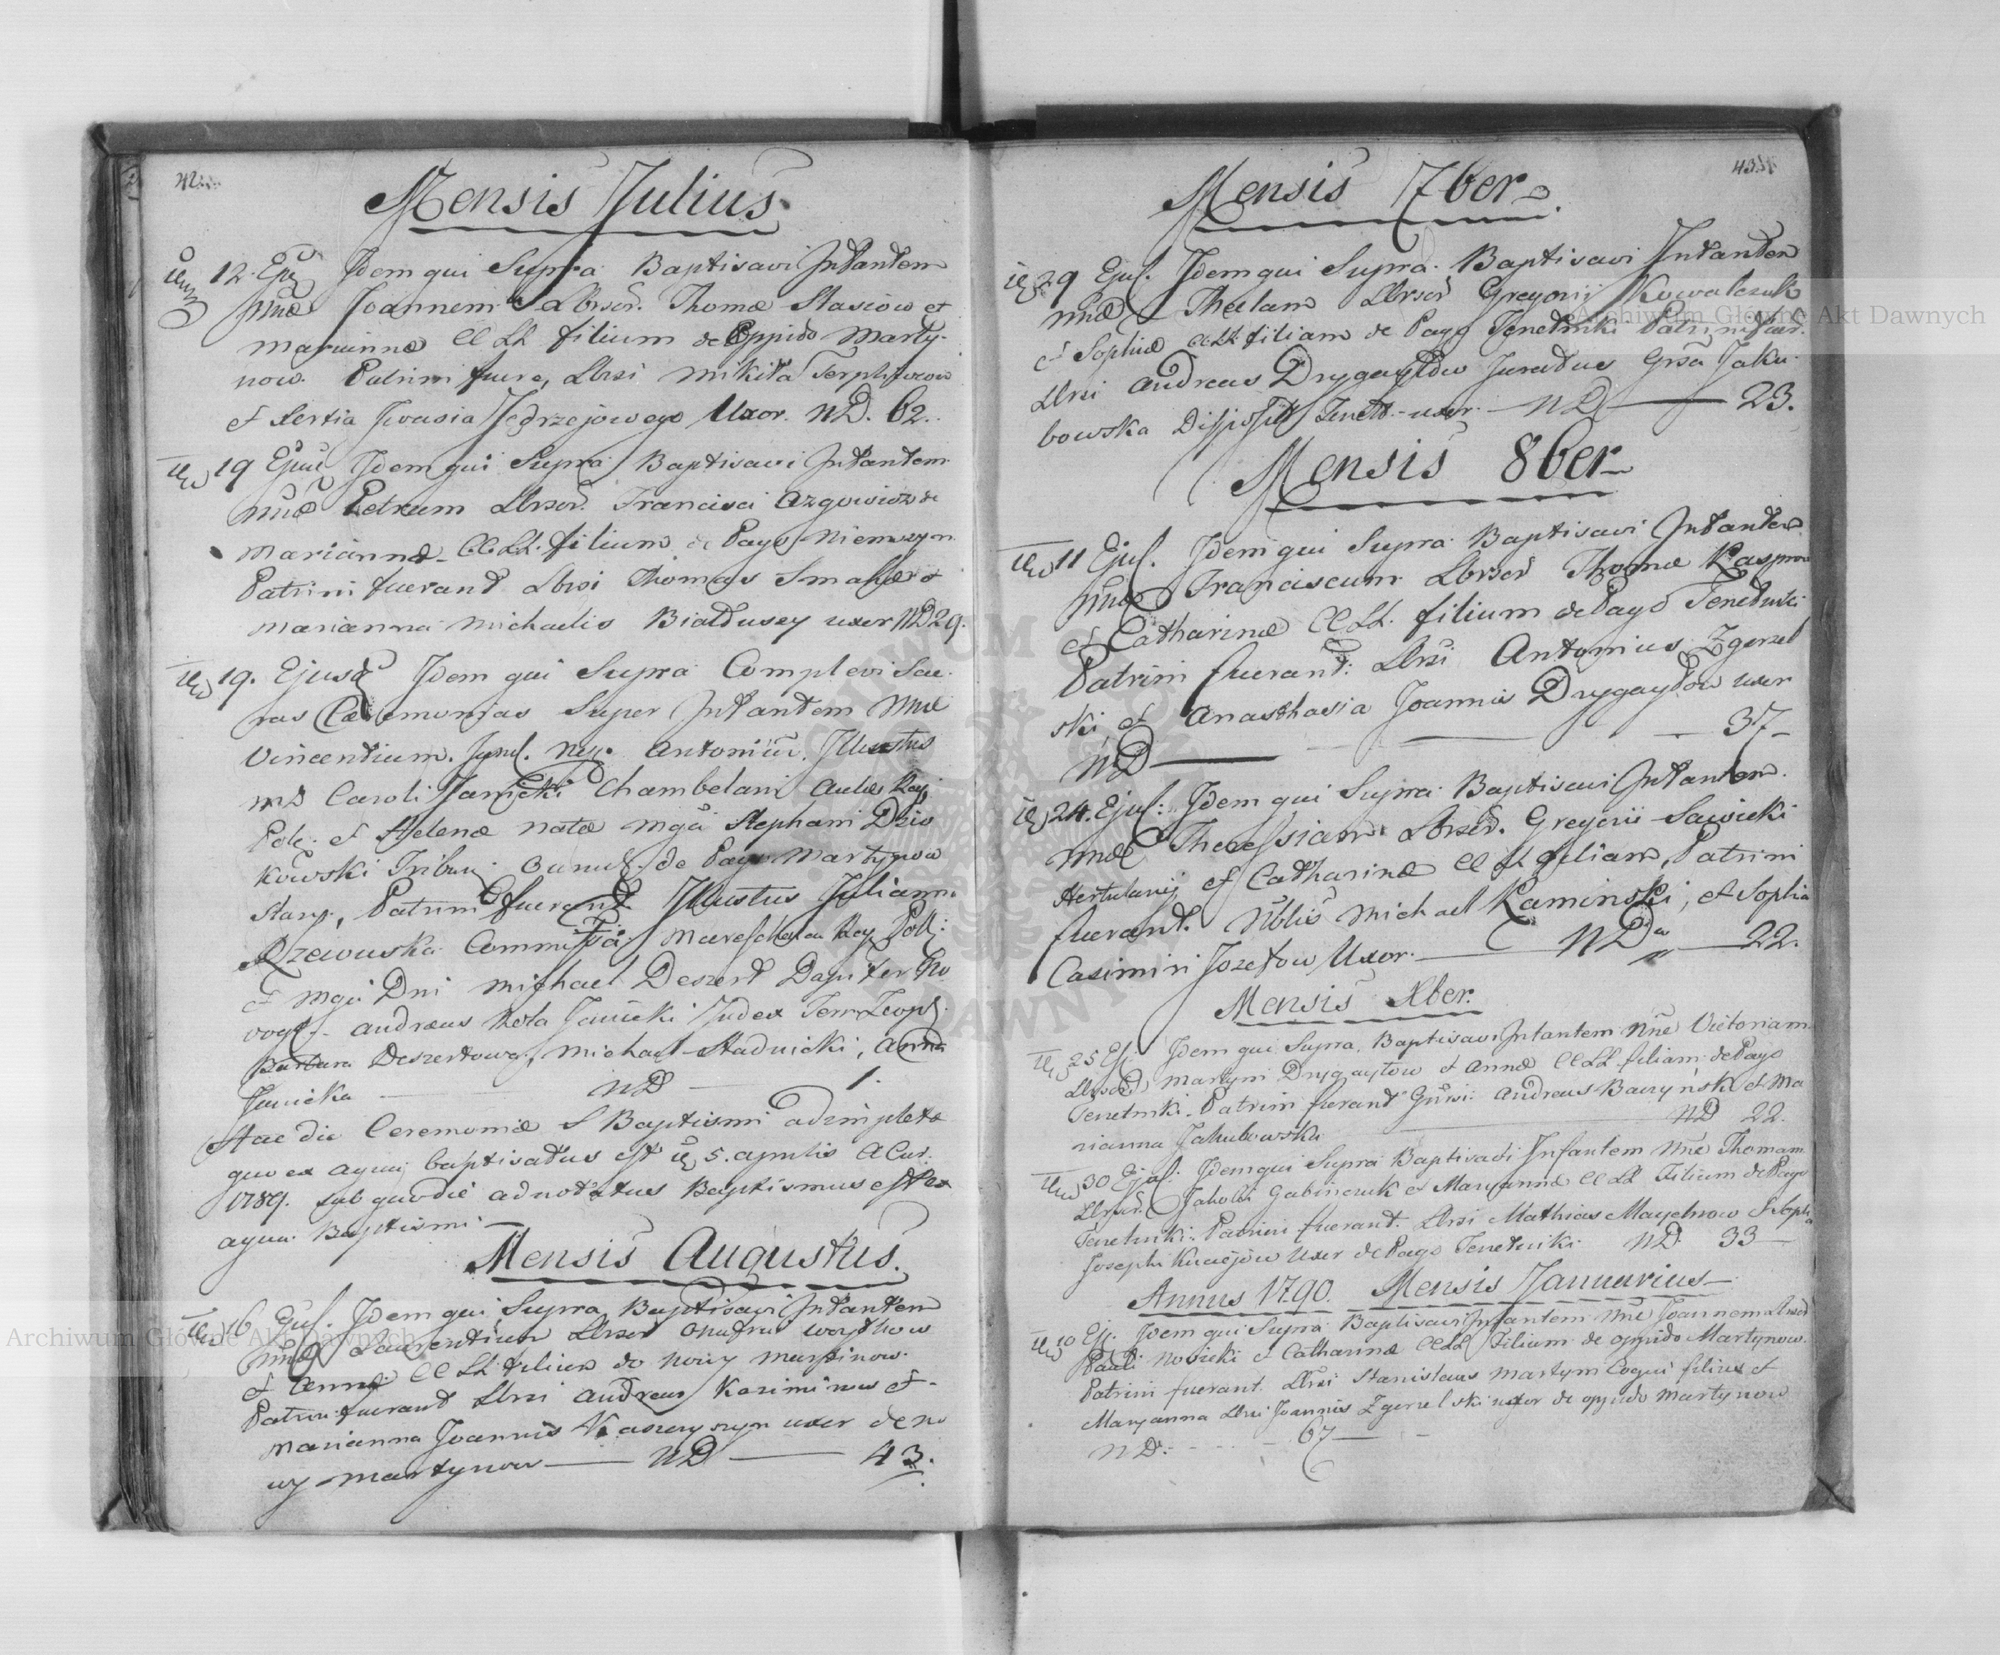 42
Mensis Julius
12. Ejus Idem qui Supra Baptisavi Infantem
nnē Joannem Lbrsor. Thomæ Stasiow et
Mariannæ CCLL filium de Oppido Marty-
now. Patrini fuere, Lbrsi Mikita Serphinow
et Xertia Iwasia Jędrzejowego Uxor. ND. 62.
19 Ejus Idem qui Supra Baptisavi Infantem
nnē Petrum Lbrsor. Francisci
Mariannæ CCLL. filium de Pago Niemszyn
Patrini fuerant Lbrsi Thomas et
Marianna Michaelis uxor ND 29.
19. Ejusd Idem qui Supra Complevi Sac-
ras Cæremonias Super Infantem nnē
Vincentium. Antonium. Illustris
MD Caroli Janicki Chambelani Aulæ Reg
Pol. et Helenæ natæ Mgci Stephani Dzio
kowski de Pago Martynow
Stary, Patrini fuerant Illustris Julianna
Rzewuska Reg Poll:
et Mgci Dni Michael Deszert Dapifer
Andreas Rola Janicki Judex Terr Leopl.
Barbara Deszertowa, Michael Stadnicki, Anna
Janicka ND 1.
Hac die Ceremoniæ S Baptismi adimpletæ
qui ex aqua baptisatus est 5. aprilis a Cur.
1789. sub quo die adnotatus Baptismus est ex
aqua Baptismi.
Mensis Augustus.
16 Ejus. Idem qui Supra Baptisavi Infantem
nnē Laurentium Lbrsor
et Annæ CCLL filium de Nowy Martinow.
Patrini fuerant Lbrsi Andreas Kazimirow et
Marianna Joannis uxor de No
wy Martynow ND 43.
43
Mensis 7ber
29 Ejus. Idem qui Supra. Baptisavi Infantem
nnē Theclam Lbrsor Gregorii Kowalczuk
et Sophiæ CCLL filiam de Pago Tenetniki Patrini fuer.
Lbrsi Andreas Drygayłow Juratus Grsa Jaku-
bowska uxor. ND 23.
Mensis 8ber
11 Ejus. Idem qui Supra Baptisavi Infantem
nnē Franciscum Lbrsor Thomæ
et Catharinæ CCLL. filium de Pago Tenetniki
Patrini fuerant. Lbrsi Antonius Zgerzel
ski, et Anasthasia Joannis Drygayłow uxor
ND 37
24. Ejus: Idem qui Supra Baptisavi Infantem
nnē Theressiam Lbrsor. Gregorii Sawicki
et Catharinæ CCLL filiam, Patrini
fuerant. Nblis Michael Kaminski, et Sophia
Casimiri Jozefow Uxor. ND 22.
Mensis Xber.
25 Ej. Idem qui Supra Baptisavi Infantem nnē Victoriam
Lbrsor Martyni Drygaytow et Annæ CCLL filiam de Pago
Tenetniki. Patrini fuerant Andreas et Ma
rianna Jakubowska ND 22.
30 Ejus. Idem qui Supra Baptisavi Infantem nnē Thomam
Lbrsor. Jakobi Gabinczuk et Maryannæ CCLL Filium de Pago
Tenetniki. Patrini fuerant. Lbrsi Mathias et Sophia
Josephi Uxor de Pago Tenetniki. ND. 33
Annus 1790. Mensis Januarius
10 Ej. Idem qui Supra Baptisavi Infantem nnē Joannem Lbrsor
Pauli Nosicki et Catharinæ CCLL Filium de oppido Martynow.
Patrini fuerant. Lbrsi Stanislaus Martyni Coqui filius et
Maryanna Lbrsi Joannis Zgerzelski uxor de oppido Martynow
ND. 67
Archiwum Główne Akt Dawnych
Archiwum Główne Akt Dawnych